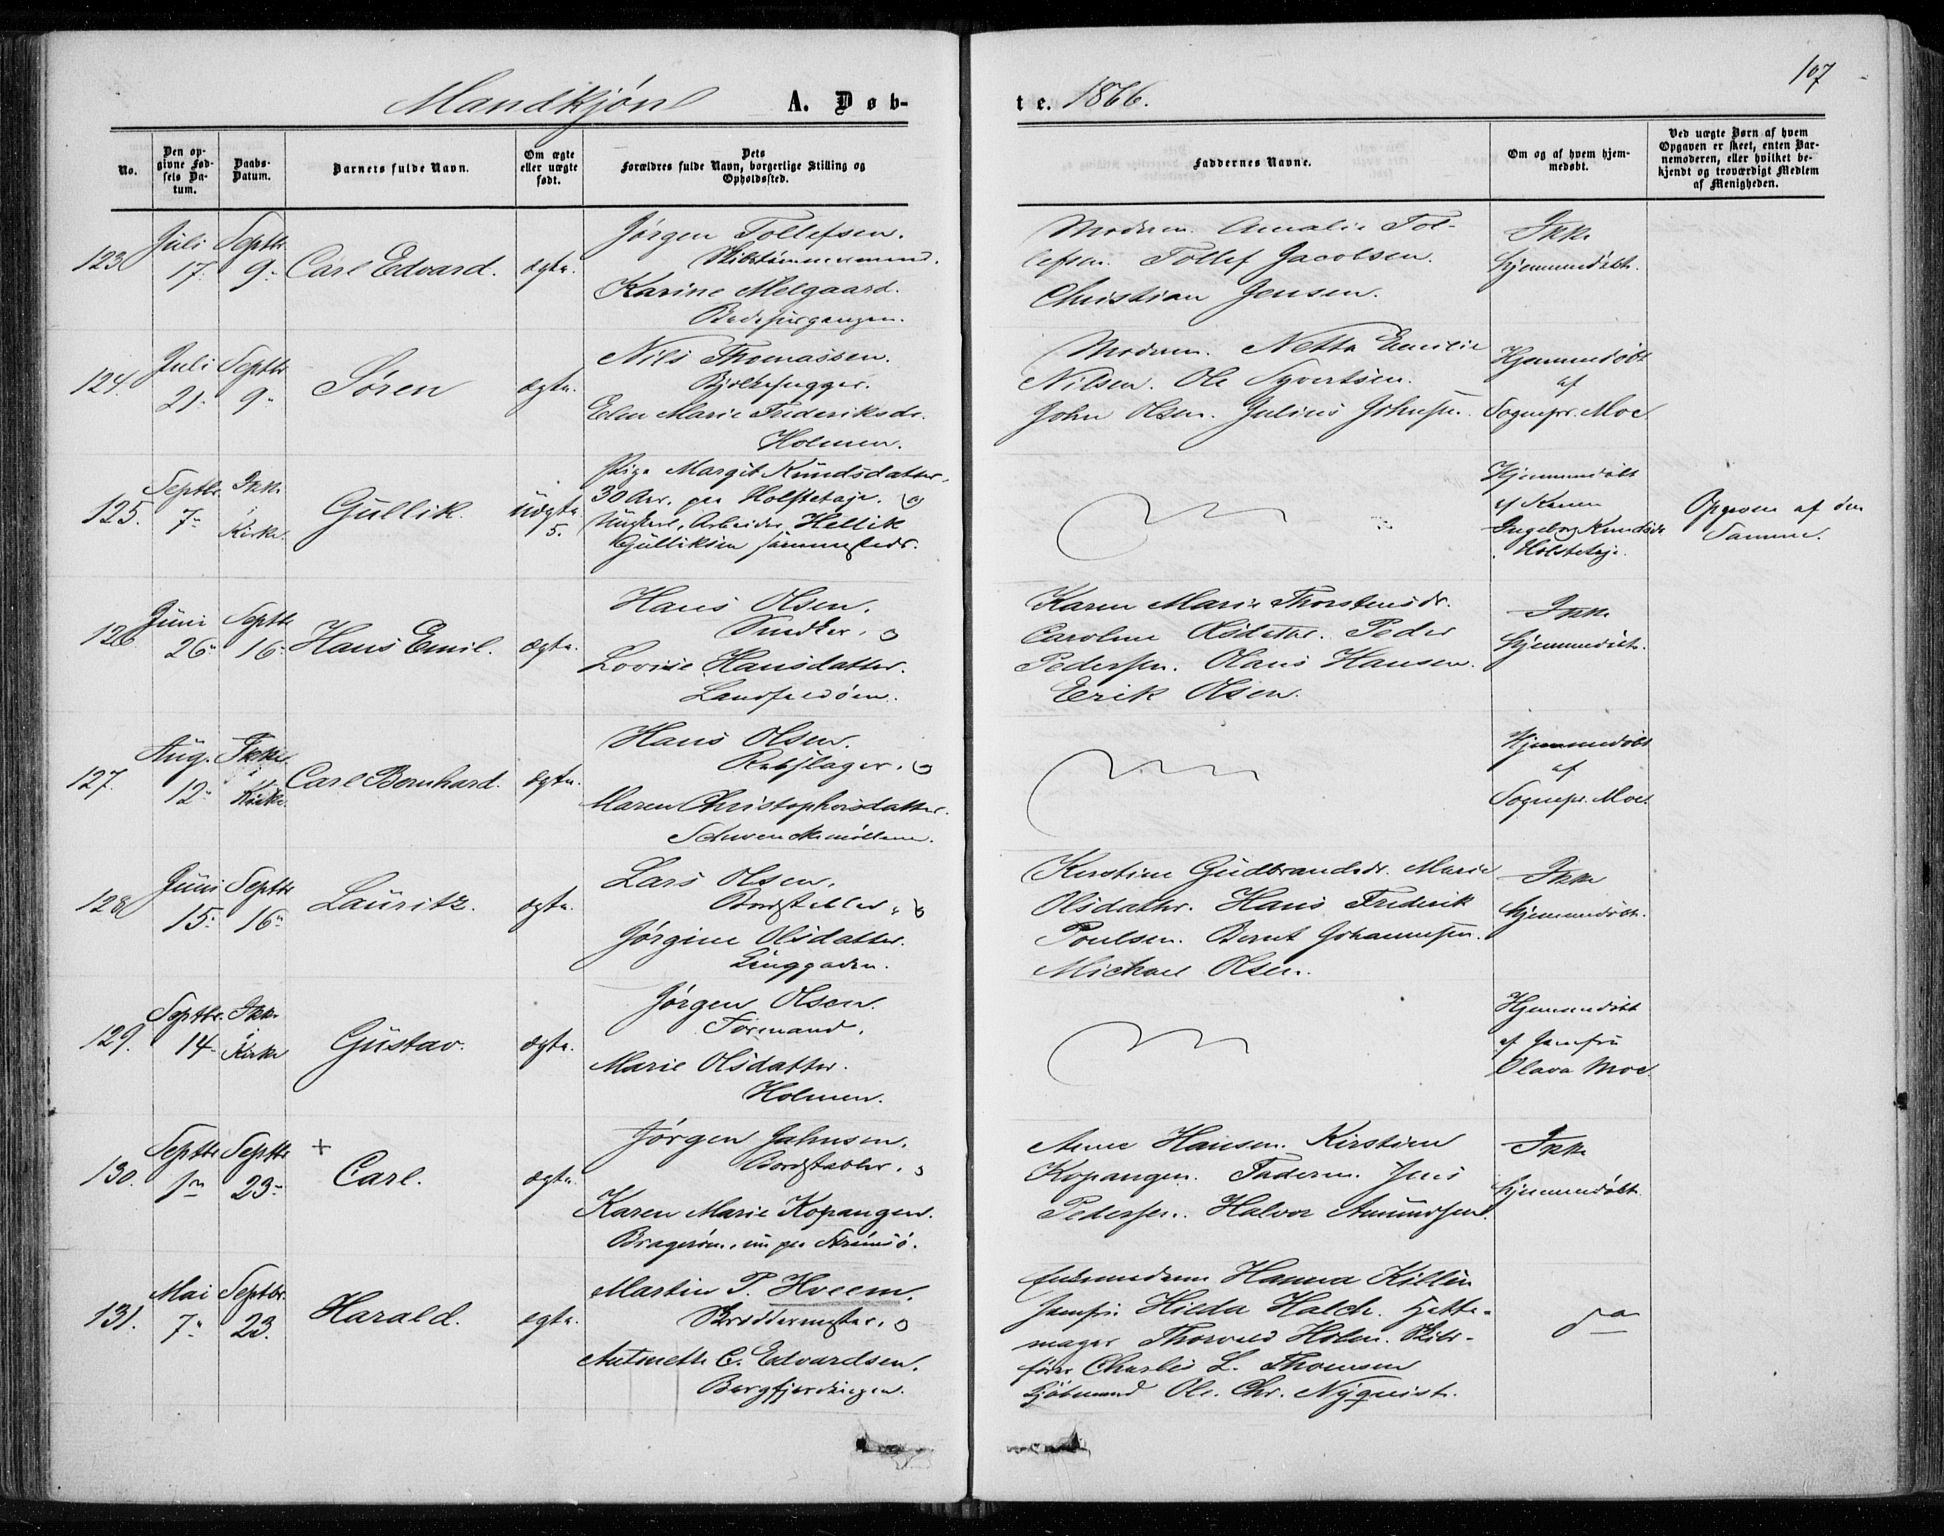 107
Mandkjøn A. Døb-
te. 1866.
No.
Den op-
givne Fød-
sels Da-
tum.
Daabs-
Datum.
Barnets fulde Navn.
Om ægte
eller uægte
født.
Dets
Forældres fulde Navn, borgerlige Stilling og
Opholdssted.
Faddernes Navne.
Om og af hvem hjem-
medøbt.
Ved uægte Børn af hvem
Opgaven er skeet, enten Bar-
nemoderen, eller hvilket be-
kjendt og troværdigt Medlem
af Menigheden.
123
Juli
17.
Septbr
9.
Carl Edvard.
ægte.
Jørgen Tollefsen.
Skibstømmermand.
Karine Melgaard.
Moderen. Amalie Tol-
lefsen. Tollef Jacobsen.
Christian Jensen.
Ikke
hjemmedøbt.
124.
Juli
21.
Septbr
9.
Søren
ægte.
Nils Thomassen.
Bjelkehugger.
Elen Marie Frederiksdr.
Holmen.
Moderen. Netta Emilie
Nilsen. Ole Syvertsen.
John Olsen. Julius Johnsen.
Hjemmedøbt
af
Sognepr. Moe
125.
Septbr.
7.
Ikke
i
Kirke.
Gullik.
uægte
5.
Pige Margit Knudsdatter,
30 Aar, paa Holstetøje. og
Ungkarl, Arbeider, Hellik
Gulliksen sammesteds.
Hjemmedøbt
af Karen
Ingeborg Knudsdr
Holstetøje.
Opgaven af den
Samme.
126
Juni
26.
Septbr
16.
Hans Emil.
ægte.
Hans Olsen.
Snedker. og
Lovise Hansdatter.
Landfaldøen.
Karen Marie Thorstensdr.
Caroline Olsdatter. Peder
Pedersen. Olaus Hansen.
Erik Olsen.
Ikke
hjemmedøbt.
127.
Aug.
12.
Ikke
i
Kirke.
Carl Bernhard.
ægte.
Hans Olsen.
Rebslager. og
Maren Christophersdatter.
Schwenckemøllene.
Hjemmedøbt
af
Sognepr. Moe.
128
Juni
15.
Septbr
16.
Lauritz.
ægte.
Lars Olsen.
Bordstabler. og
Jørgine Olsdatter.
Enggaden.
Kirstine Gudbrandsdr. Marie
Olsdatter. Hans Frederik
Poulsen. Bernt Johannesen.
Michael Olsen.
Ikke
hjemmedøbt.
129.
Septbr.
14.
Ikke
i
Kirke
Gustav.
ægte.
Jørgen Olsen.
Formand.
Marie Olsdatter.
Holmen.
Hjemmedøbt
af Jomfru
Olava Moe.
130.
Septbr
1ste
Septbr
23.
+
Carl.
ægte.
Jørgen Johnsen.
Bordstabler. og
Karen Marie Kopangen.
Bragernæs, nu paa Strømsø.
Anne Hansen. Kirstine
Kopangen. Faderen. Jens
Pedersen. Halvor Amundsen.
Ikke
hjemmedøbt.
131.
Mai
7.
Septbr.
23.
Harald.
ægte.
Martin P. Hveem.
Skræddermester. og
Antonette C. Edvardsen.
Bergfjerdingen.
Hanna
Jomfru Hilda Halck. Hatte-
mager Thorvald Holm. Skibs-
fører Charles L. Thomsen
Ole Chr. Nyquist.
do